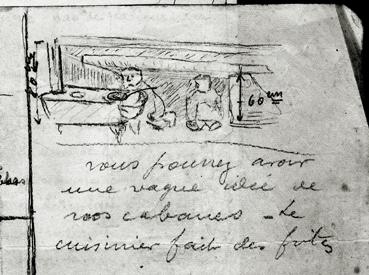 60 cm
vous pouvez avoir
une vague idée de
nos cabanes - Le
cuisinier fait des frites